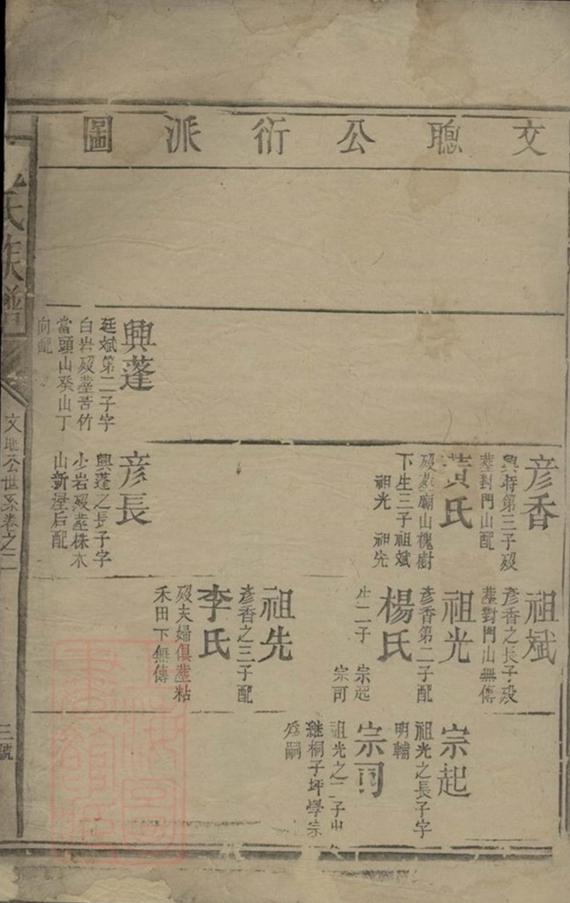 文聰公衍派圖
彥香
興蔣第三子歿
塟對門山配
黃氏
歿塟廟山槐樹
下生三子祖斌
祖光 祖先
興蓬
廷斌第二子字
白岩歿塟苦竹
當頭山癸山丁
向配
彥長
興蓬之長子字
少岩歿塟株木
山新屋后配
祖斌
彥香之長子歿
塟對門山無傳
祖光
彥香第二子配
楊氏
生二子 宗起
宗司
祖先
彥香之三子配
李氏
歿夫婦俱塟粘
禾田下無傳
宗起
祖光之長子字
明輔
宗司
祖光之二子出
繼桐子坪學宗
為嗣
氏族譜
文聰公世系卷之二
三號